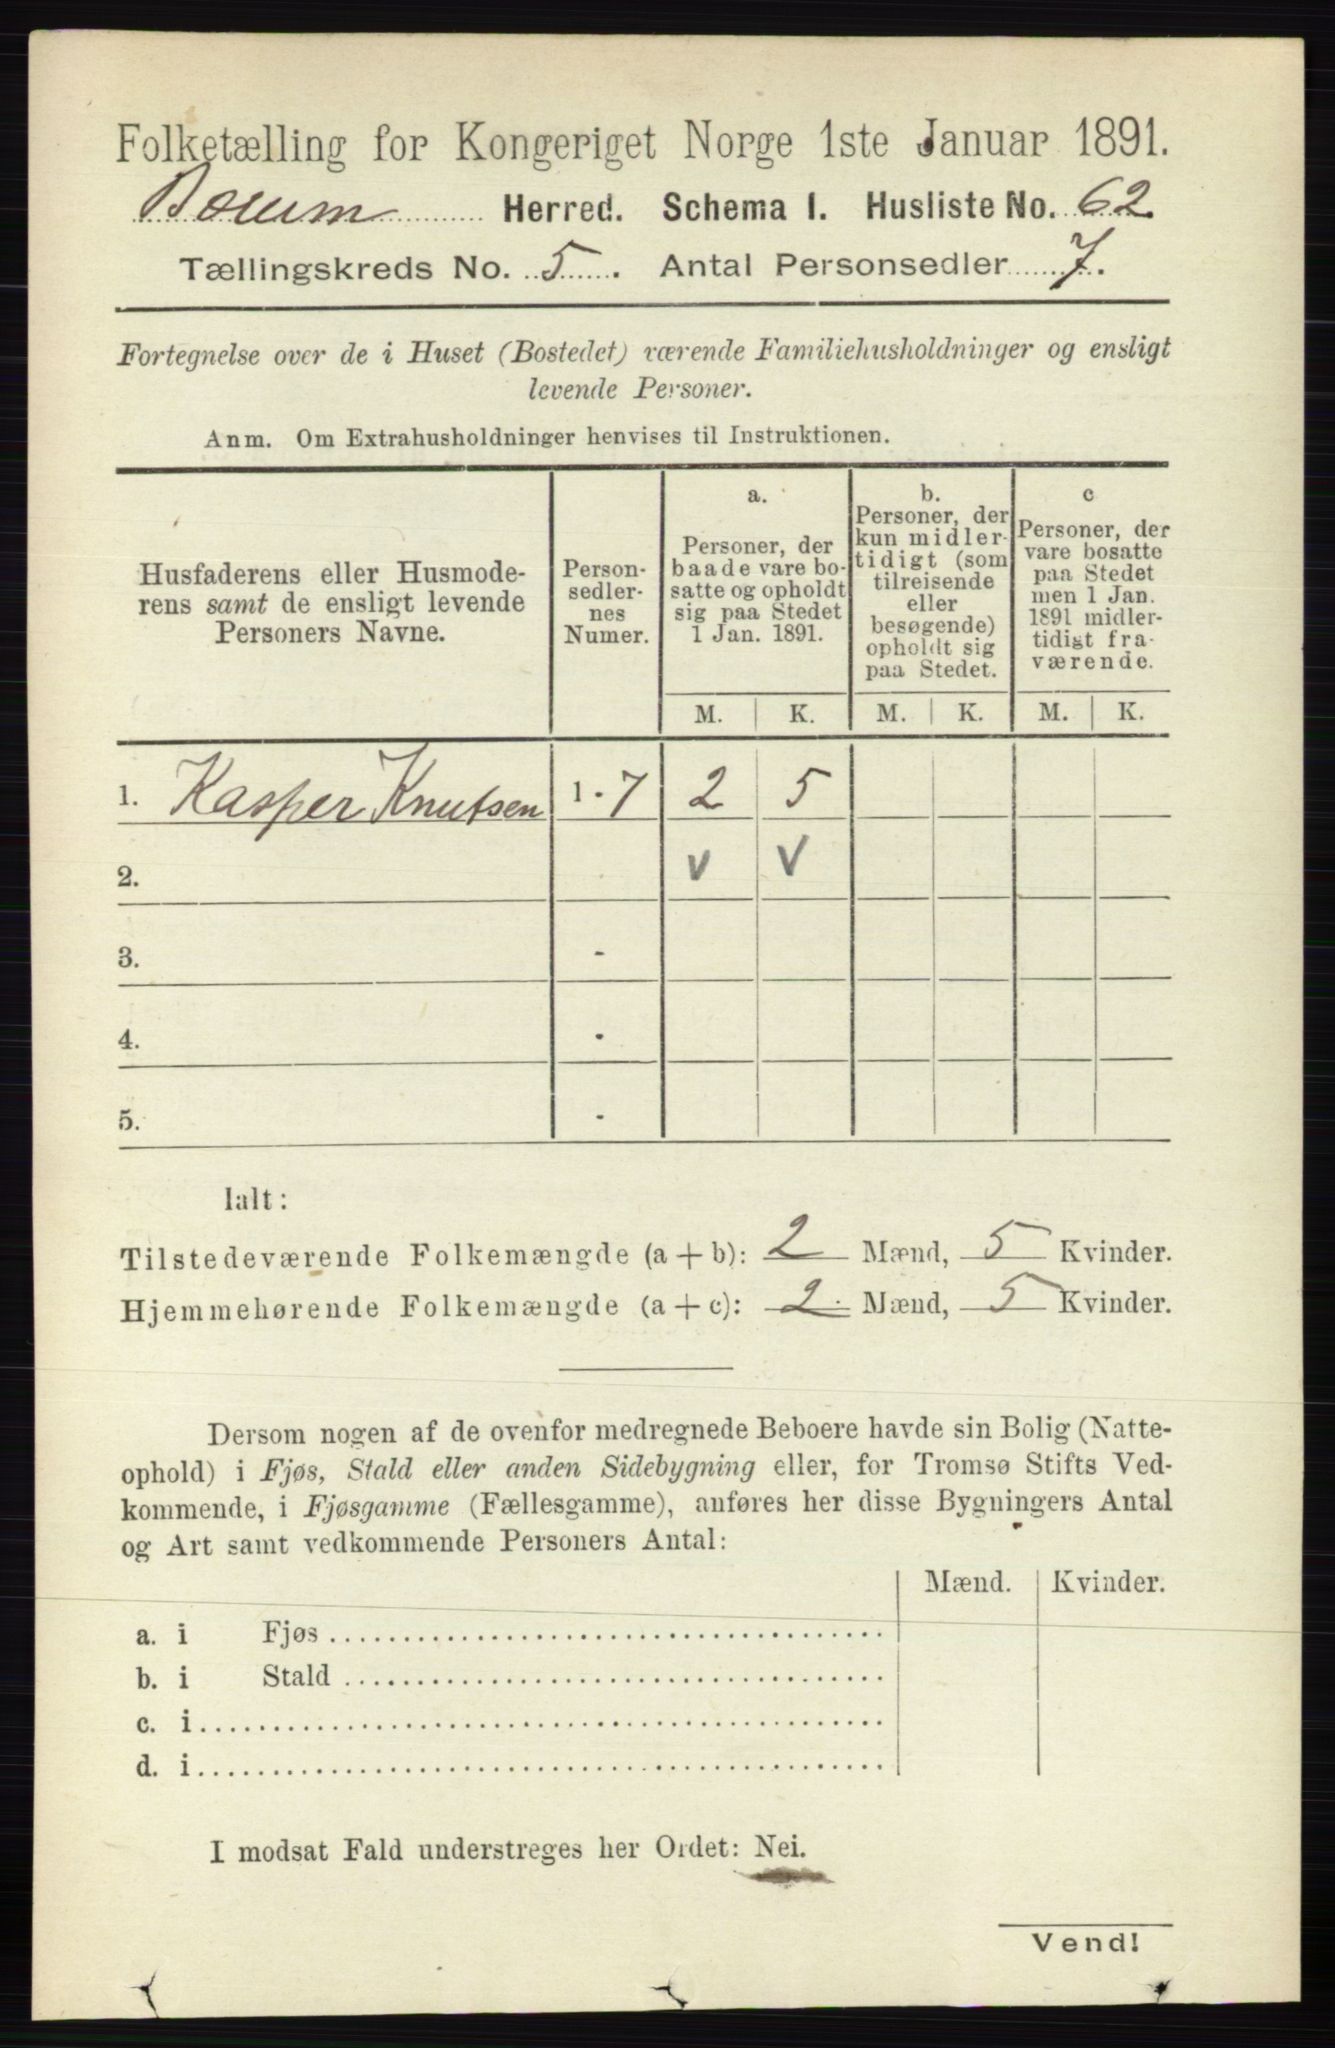 Folketælling for Kongeriget Norge 1ste Januar 1891.
Bærum Herred. Schema I. Husliste No. 62
Tællingskreds No. 5. Antal Personsedler 7.
Fortegnelse over de i Huset (Bostedet) værende Familiehusholdninger og ensligt
levende Personer.
Anm. Om Extrahusholdninger henvises til Instruktionen.
Husfaderens eller Husmode-
rens samt de ensligt levende
Personers Navne.
Person-
sedler-
nes
Numer.
a.
Personer, der
baade vare bo-
satte og opholdt
sig paa Stedet
1 Jan. 1891.
b.
Personer, der
kun midler-
tidigt (som
tilreisende
eller
besøgende)
opholdt sig
paa Stedet.
c
Personer, der
vare bosatte
paa Stedet
men 1 Jan.
1891 midler-
tidigt fra-
værende.
M. K. M. K. M. K.
1. Kasper Knutsen 1 - 7 2 5
2. v v
3. -
4. -
5. -
Ialt:
Tilstedeværende Folkemængde (a + b): 2 Mænd, 5 Kvinder.
Hjemmehørende Folkemængde (a + c): 2 Mænd, 5 Kvinder.
Dersom nogen af de ovenfor medregnede Beboere havde sin Bolig (Natte-
ophold) i Fjøs, Stald eller anden Sidebygning eller, for Tromsø Stifts Ved-
kommende, i Fjøsgamme (Fællesgamme), anføres her disse Bygningers Antal
og Art samt vedkommende Personers Antal:
Mænd. Kvinder.
a. i Fjøs
b. i Stald
c. i
d. i
I modsat Fald understreges her Ordet: Nei.
Vend!